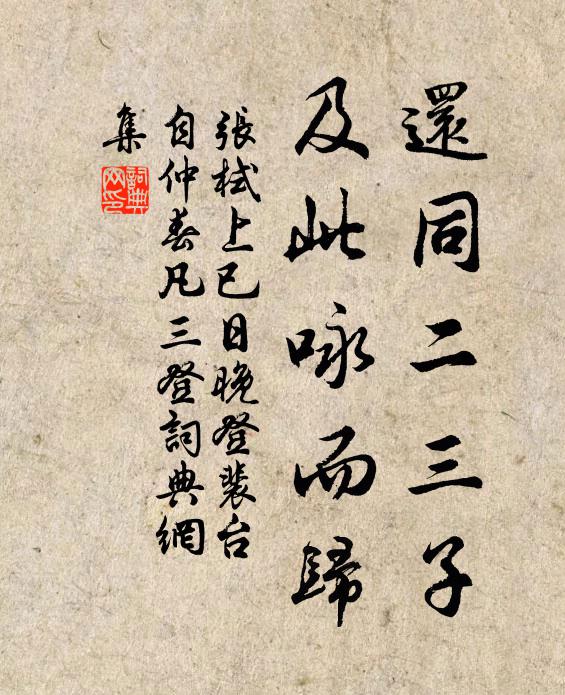 還同二三子
及此咏而歸
張栻上巳日晚登裴台
自仲春凡三登詞典網
集
詞典网印